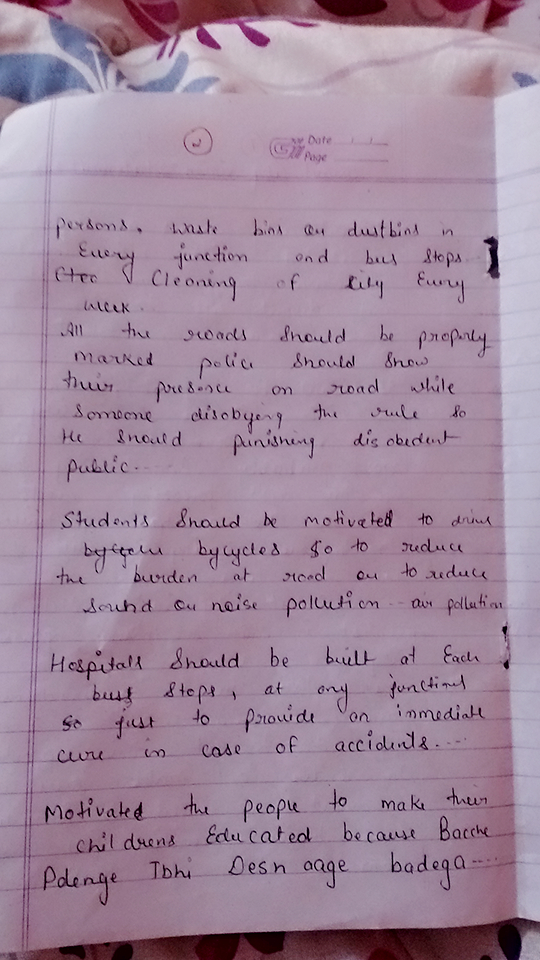 2
Date
Page
persons. waste bins or dustbins in
Every junction and bus stops
Etcc Cleaning of City Every
week.
All the roads should be properly
marked police should show
their presence on road while
someone disobying the rule so
He should punishing disobedent
public....
Students should be motivated to drive
bycycles so to reduce
the burden at road or to reduce
sound or noise pollution .. air pollution
Hospitals should be built at Each
bus stops, at any junctions
so just to provide an immediate
cure in case of accidents....
Motivated the people to make their
childrens Educated because Bacche
Pdenge Tbhi Desh aage badega....